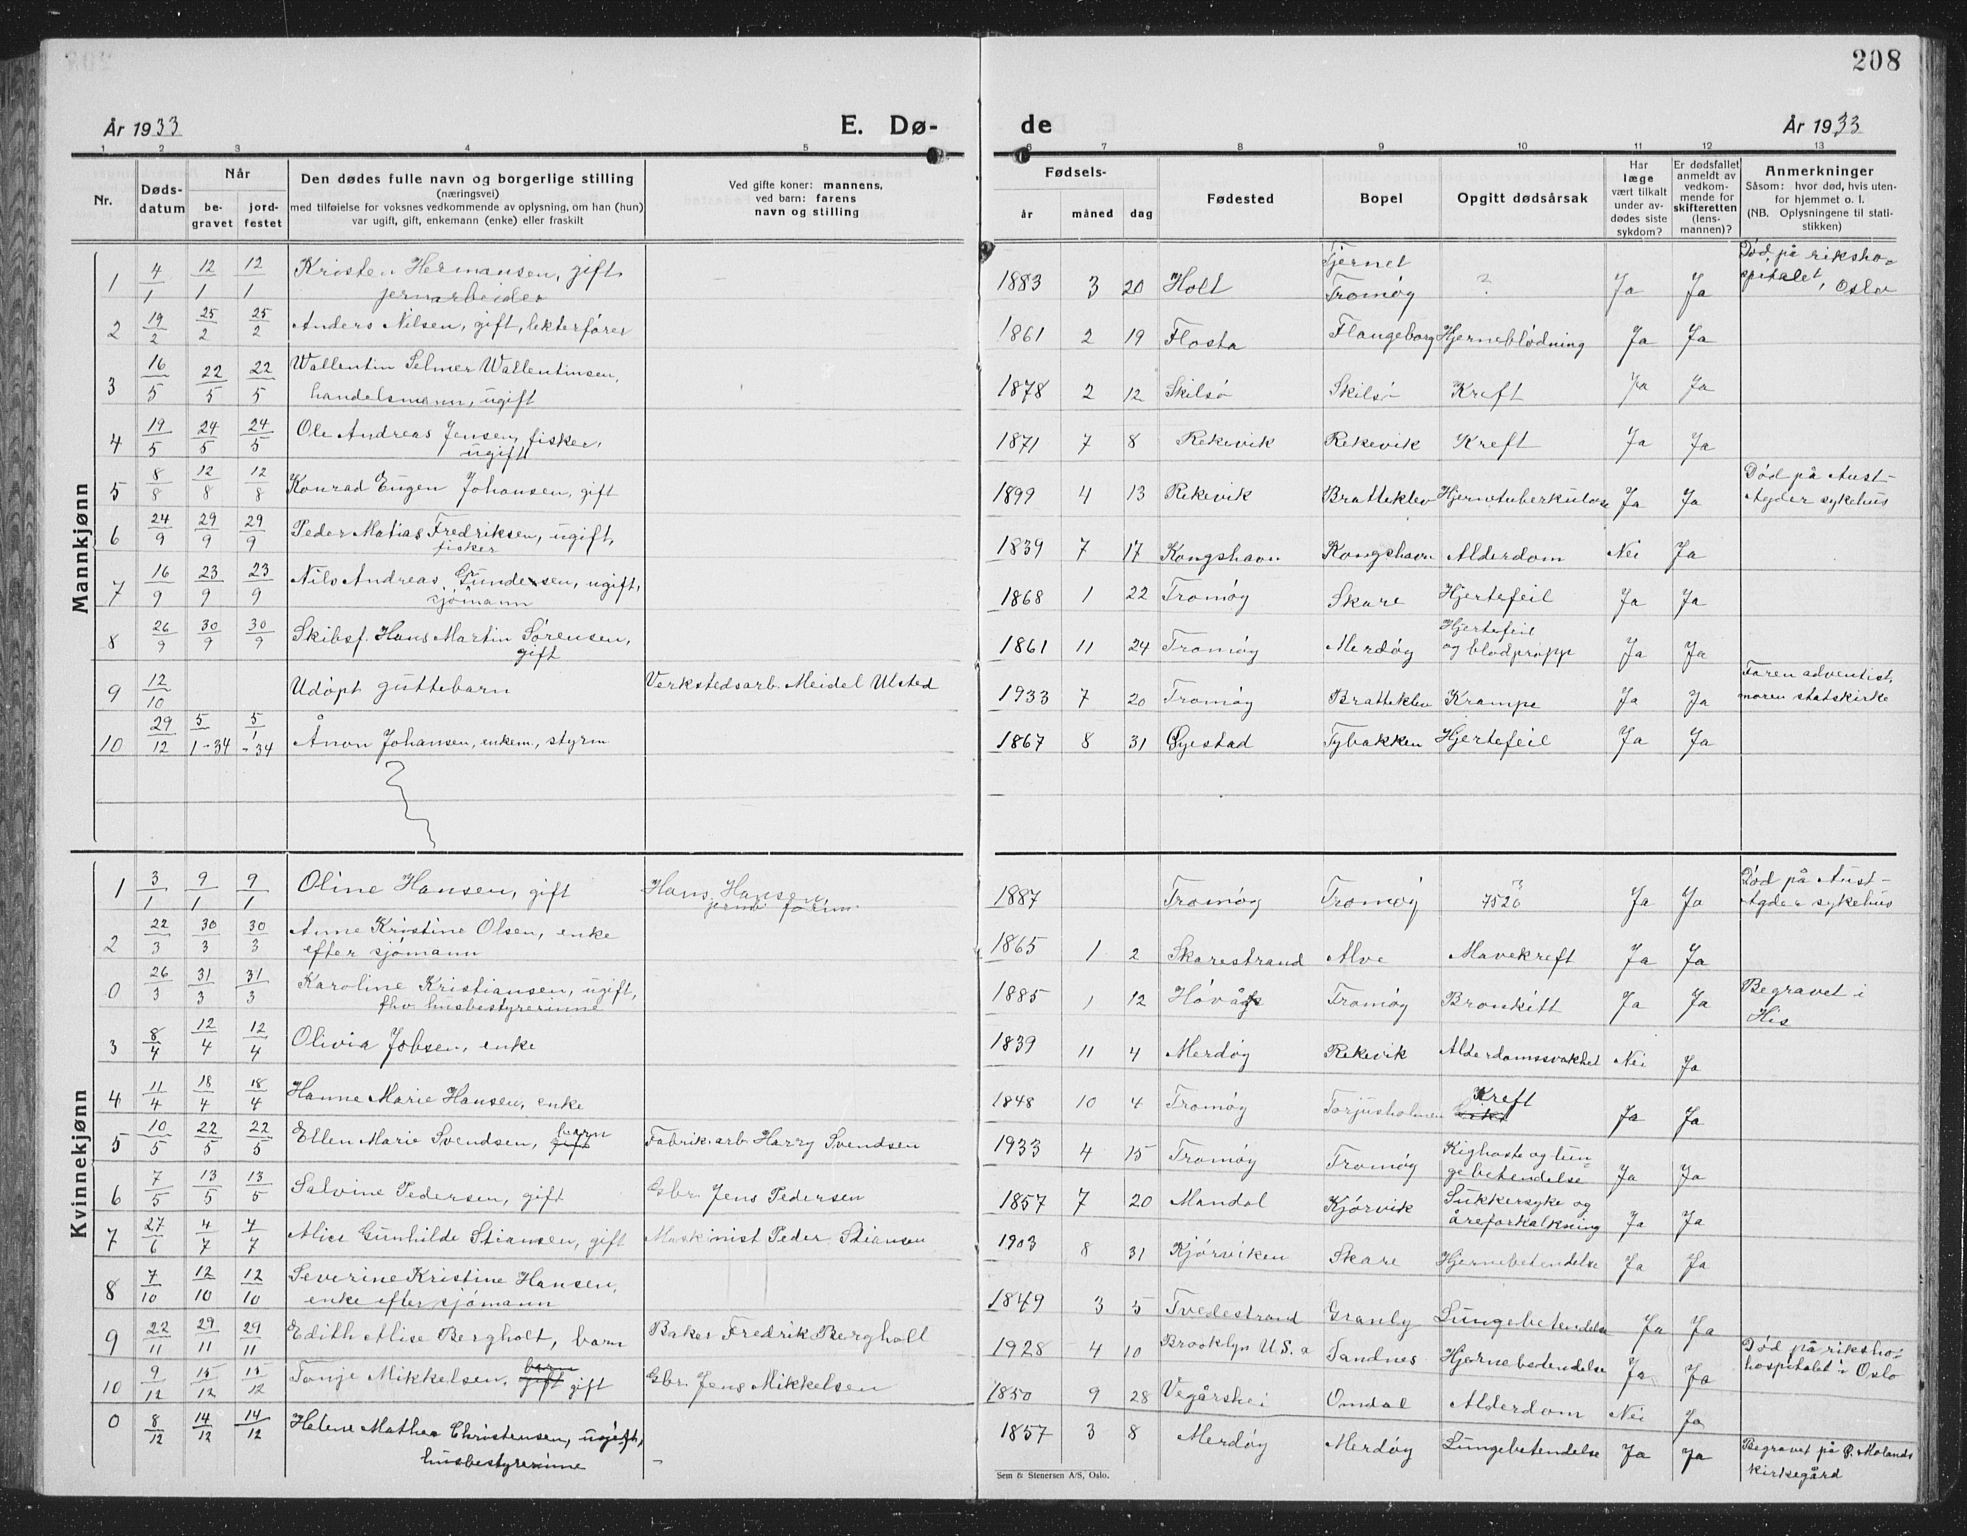 208
År 1933
E. Dø-
de
År 1933
1 2 3 4 5 6 7 8 9 10 11 12 13
Nr.
Døds-
datum
Når
be-
gravet
jord-
festet
Den dødes fulle navn og borgerlige stilling
(næringsvei)
med tilføielse for voksnes vedkommende av oplysning, om han (hun)
var ugift, gift, enkemann (enke) eller fraskilt
Ved gifte koner: mannens,
ved barn: farens
navn og stilling
Fødsels-
år måned dag
Fødested
Bopel
Opgitt dødsårsak
Har
læge
vært tilkalt
under av-
dødes siste
sykdom?
Er dødsfallet
anmeldt av
vedkom-
mende for
skifteretten
(lens-
mannen)?
Anmerkninger
Såsom: hvor død, hvis uten-
for hjemmet o. l.
(NB. Oplysningene til stati-
stikken)
Mannkjønn
1 4/1 12/1 12/1 Kristen Hermansen, gift, 1883 3 20 Holt Tjernet ? Ja Ja Død på riksho-
jernarbeider Tromøy spitalet, Oslo
2 19/2 25/2 25/2 Anders Nilsen, gift, lekterfører 1861 2 19 Flosta Flangeborg Hjerneblødning Ja Ja
3 16/5 22/5 22/5 Wallentin Selmer Wallentinsen, 1878 2 12 Skilsø Skilsø Kreft Ja Ja
handelsmann, ugift
4 19/5 24/5 24/5 Ole Andreas Jensen, fisker, 1871 7 8 Rekevik Rekevik Kreft Ja Ja
ugift
5 8/8 12/8 12/8 Konrad Eugen Johansen, gift 1899 4 13 Rekevik Bratteklev Hjernetuberkulose Ja Ja Død på Aust-
Agder sykehus
6 24/9 29/9 29/9 Peder Matias Fredriksen, ugift, 1839 7 17 Kongshavn Kongshavn Alderdom Nei Ja
fisker
7 16/9 23/9 23/9 Nils Andreas Gundersen, ugift, 1868 1 22 Tromøy Skare Hjertefeil Ja Ja
sjømann
8 26/9 30/9 30/9 Skibsf. Hans Martin Sørensen, 1861 11 24 Tromøy Merdøy Hjertefeil Ja Ja
gift og blodpropp
9 12/10 Udøpt guttebarn Verkstedsarb. Meidel Ulsted 1933 7 20 Tromøy Bratteklev Krampe Ja Ja Faren adventist,
moren statskirke
10 29/12 5/1-34 5/1-34 Ånon Johansen, enkem., styrm 1867 8 31 Øyestad Tybakken Hjertefeil Ja Ja
Kvinnekjønn
1 3/1 9/1 9/1 Oline Hansen, gift Hans Hansen, 1887 Tromøy Tromøy ? Ja Ja Død på Aust-
752b Agder sykehus
2 22/3 30/3 30/3 Anne Kristine Olsen, enke 1865 1 2 Skarestrand Alve Mavekreft Ja Ja
efter sjømann
0 26/3 31/3 31/3 Karoline Kristiansen, ugift, 1885 1 12 Høvåg Tromøy Bronkitt Ja Ja Begravet i
fhv. husbestyrerinne His
3 8/4 12/4 12/4 Olivia Jobsen, enke 1839 11 4 Merdøy Rekevik Alderdomssvakhet Nei Ja
4 11/4 18/4 18/4 Hanne Marie Hansen, enke 1848 10 4 Tromøy Torjusholmen Kreft Ja Ja
5 10/5 22/5 22/5 Ellen Marie Svendsen, gift barn Fabrik.arb. Harry Svendsen 1933 4 15 Tromøy Tromøy Kighoste og lun- Ja Ja
gebetendelse
6 7/5 13/5 13/5 Salvine Pedersen, gift Gbr. Jens Pedersen 1857 7 20 Mandal Kjørvik Sukkersyke og Ja Ja
åreforkalkning
7 27/6 4/7 4/7 Alice Gunhilde Stiansen, gift Maskinist Peder Stiansen 1903 8 31 Kjørviken Skare Hjernebetendelse Ja Ja
8 7/10 12/10 12/10 Severine Kristine Hansen, 1849 3 5 Tvedestrand Granly Lungebetendelse Ja Ja
enke efter sjømann
9 22/11 29/11 29/11 Edith Alise Bergholt, barn Baker Fredrik Bergholt 1928 4 10 Brooklyn U.S.a Sandnes Hjernebetendelse Ja Ja Død på riksho-
hospitalet i Oslo
10 9/12 15/12 15/12 Tonje Mikkelsen, barn gift gift Gbr. Jens Mikkelsen 1850 9 28 Vegårshei Omdal Alderdom Nei Ja
0 8/12 14/12 14/12 Helene Mathea Christensen, ugift, 1857 3 8 Merdøy Merdøy Lungebetendelse Ja Ja Begravet på Ø. Molands
husbestyrerinne - kirkegård
Sem & Stenersen A/S, Oslo.